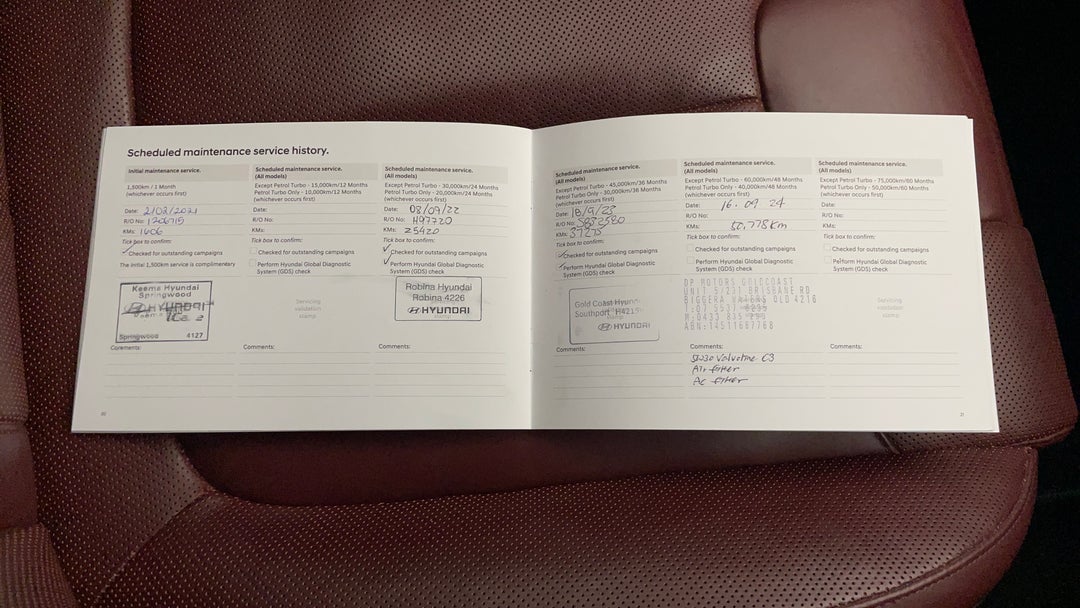 Scheduled maintenance service history.
Initial maintenance service.
1,500km / 1 Month
(whichever occurs first)
Date: 2/03/2021
R/O No:
KMs: 1606
Tick box to confirm:
Checked for outstanding campaigns
The initial 1,500km service is complimentary
Keema Hyundai
Springwood
HYUNDAI
Springwood 4127
Comments:
20
Scheduled maintenance service.
(All models)
Except Petrol Turbo - 15,000km/12 Months
Petrol Turbo Only - 10,000km/12 Months
(whichever occurs first)
Date:
R/O No:
KMs:
Tick box to confirm:
Checked for outstanding campaigns
Perform Hyundai Global Diagnostic
System (GDS) check
Servicing
validation
stamp
Comments:
Scheduled maintenance service.
(All models)
Except Petrol Turbo - 30,000km/24 Months
Petrol Turbo Only - 20,000km/24 Months
(whichever occurs first)
Date: 08/09/22
R/O No: H97720
KMs: 25420
Tick box to confirm:
Checked for outstanding campaigns
Perform Hyundai Global Diagnostic
System (GDS) check
Robina Hyundai
Robina 4226
HYUNDAI
Comments:
Scheduled maintenance service.
(All models)
Except Petrol Turbo - 45,000km/36 Months
Petrol Turbo Only - 30,000km/36 Months
(whichever occurs first)
Date: 18/9/23
R/O No:
KMs: 37275
Tick box to confirm:
Checked for outstanding campaigns
Perform Hyundai Global Diagnostic
System (GDS) check
Gold Coast Hyun
Southport, 4215
HYUNDAI
Comments:
Scheduled maintenance service.
(All models)
Except Petrol Turbo - 60,000km/48 Months
Petrol Turbo Only - 40,000km/48 Months
(whichever occurs first)
Date: 16.09 24
R/O No:
KMs: 50,778km
Tick box to confirm:
Checked for outstanding campaigns
Perform Hyundai Global Diagnostic
System (GDS) check
DP MOTORS GOLDCOAST
UNIT 5/231 BRISBANE RD
BIGGERA WATERS QLD 4216
ABN:14511667768
Comments:
5W30 Valvoline C3
Air filter
Ac filter
Scheduled maintenance service.
(All models)
Except Petrol Turbo - 75,000km/60 Months
Petrol Turbo Only - 50,000km/60 Months
(whichever occurs first)
Date:
R/O No:
KMs:
Tick box to confirm:
Checked for outstanding campaigns
Perform Hyundai Global Diagnostic
System (GDS) check
Servicing
validation
stamp
Comments:
21